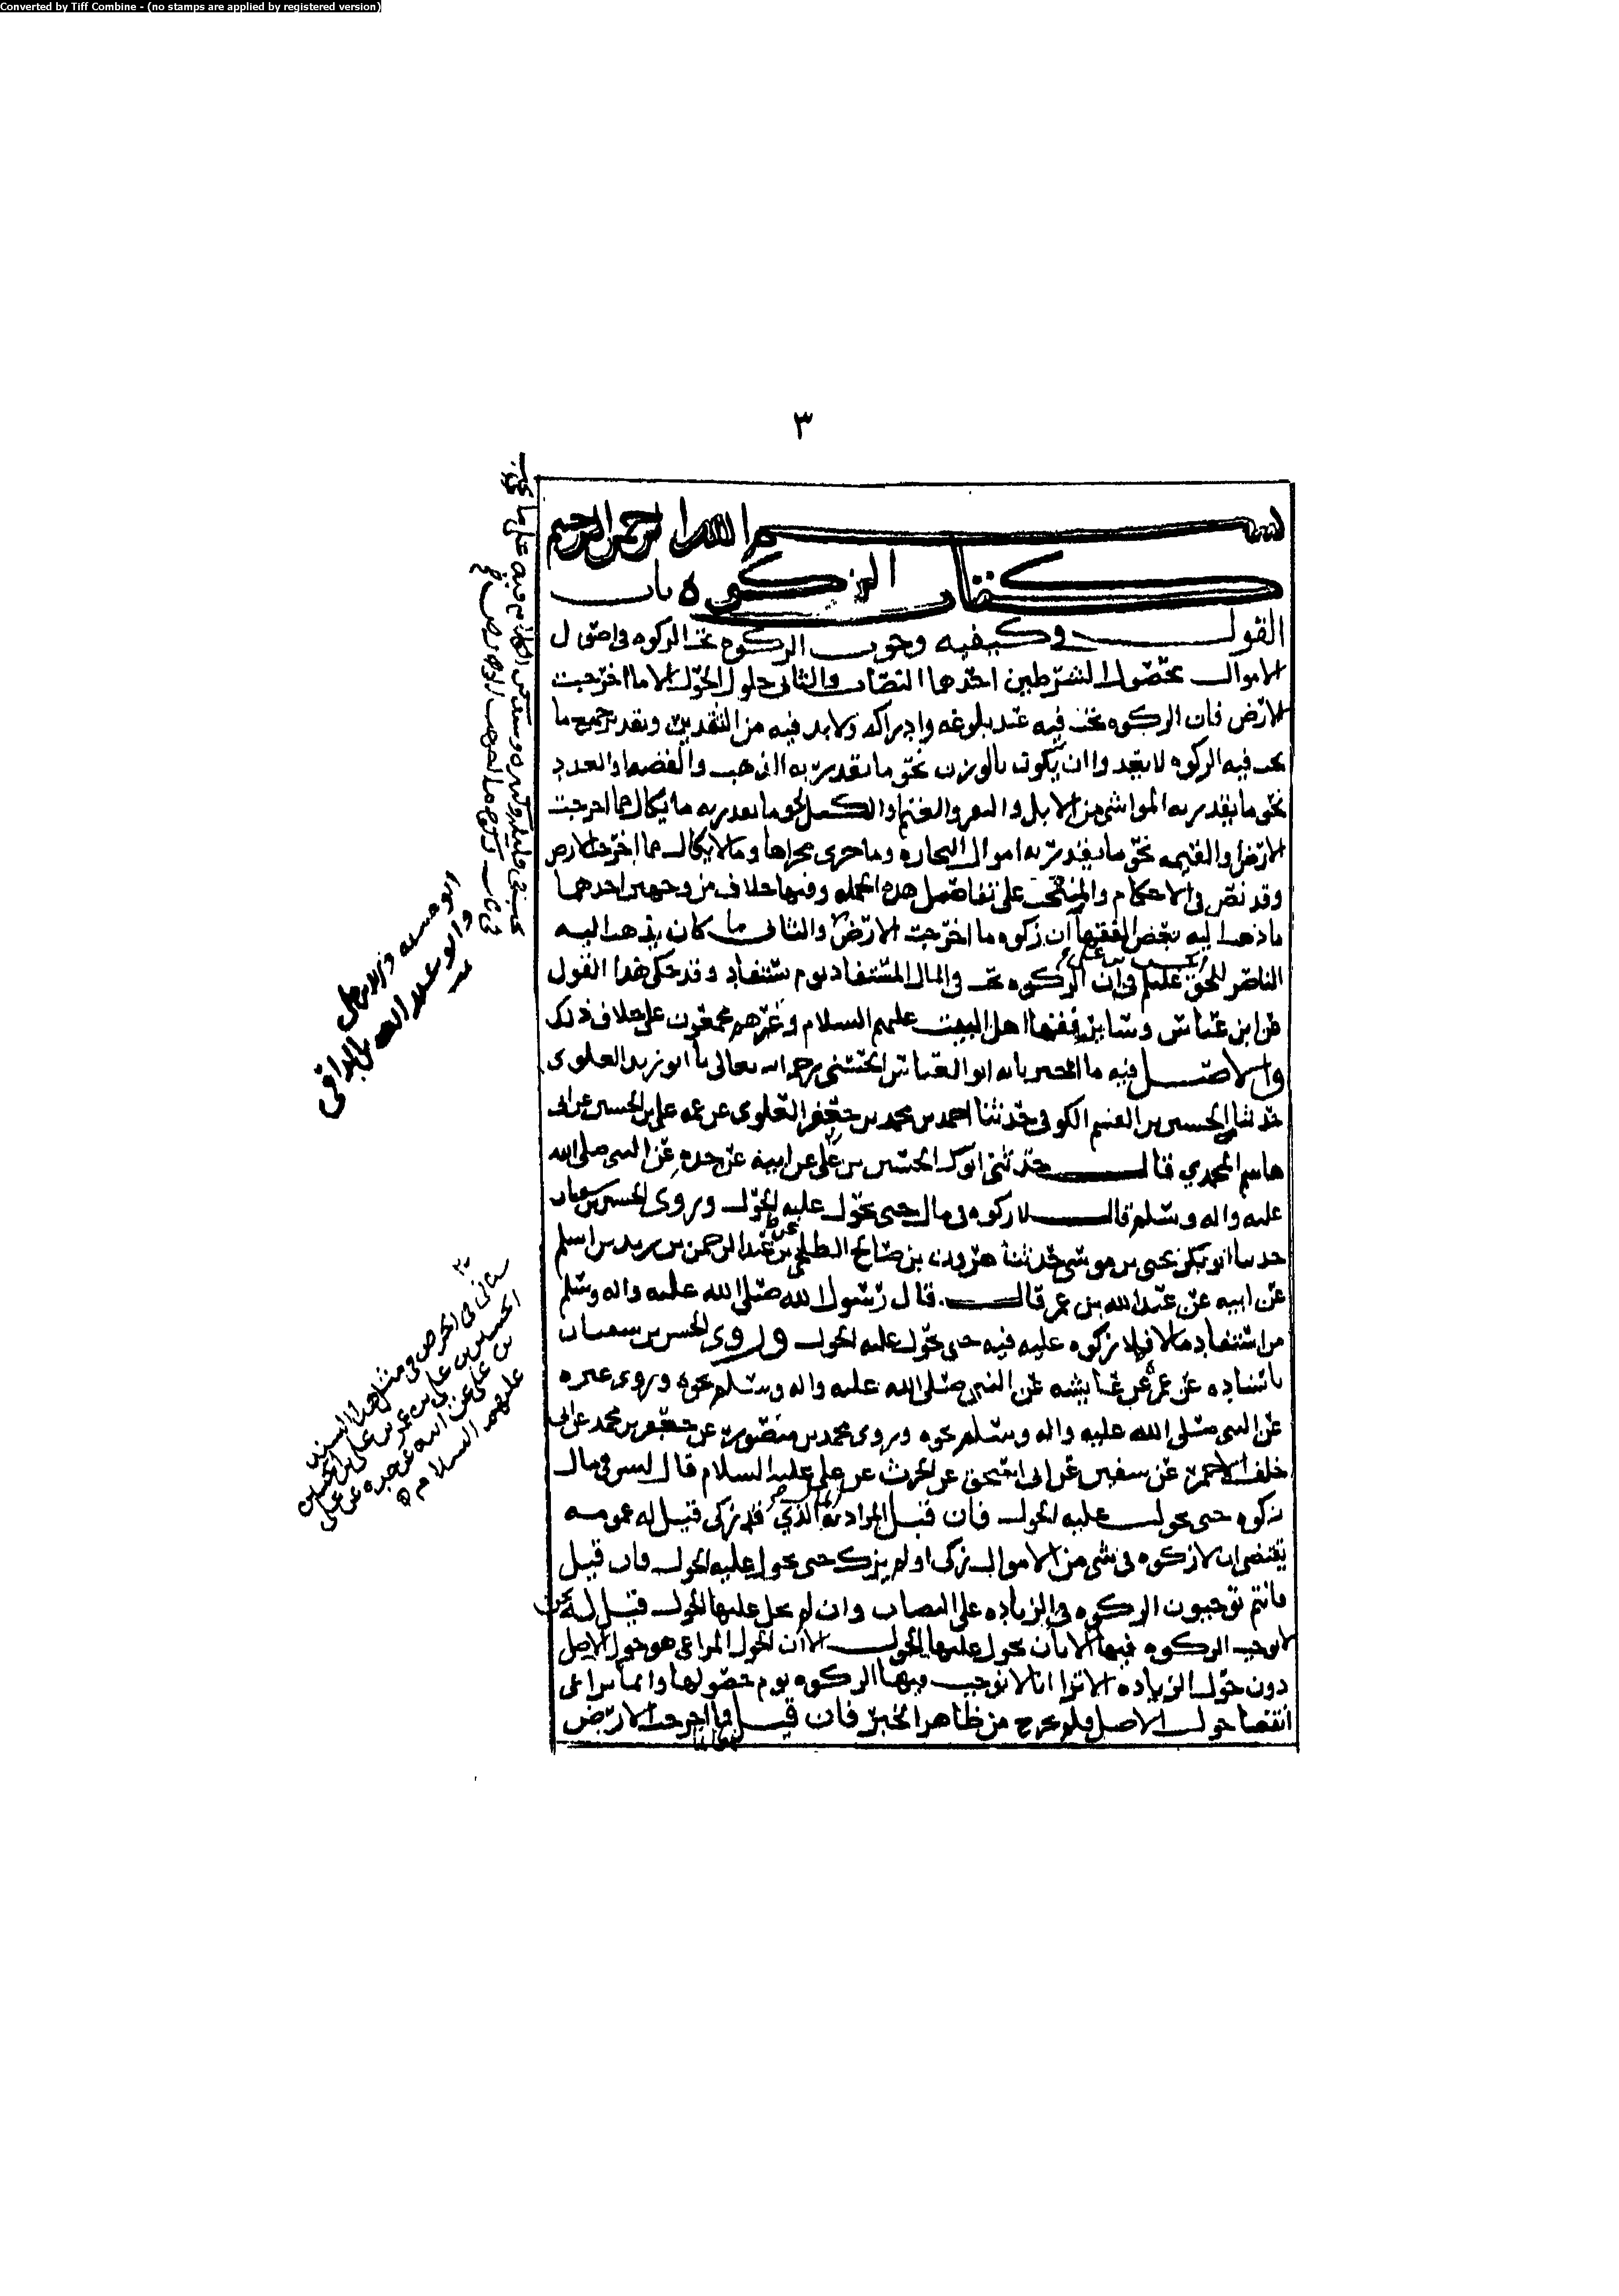 Converted by Tiff Combine - (no stamps are applied by registered version)
٣
بسم الله الرحمن الرحيم
كتاب الزكوه باب
القول في كيفيه وجوب الزكوه تجب الزكوه في اصول
الاموال بحصول الشرطين احدهما النصاب والثاني حلول الحول الا ما اخرجت
الارض فان الزكوه تجب فيه عند بلوغه وادراكه ولابد فيه من التقدير وتقدير جميع ما
تجب فيه الزكوه لا يعدوا ان يكون بالوزن نحو ما يقدر به الذهب والفضه او العدد
نحو ما يقدر به المواشي من الابل والبقر والغنم او الكيل نحو ما يقدر به ما يكال مما اخرجت
الارض او القيمه نحو ما يقدر به اموال التجاره وما جرى مجراها وما لا يكال مما اخرجت الارض
وقد نص في الاحكام والمنتخب على تفاصيل هذه الجمله وفيها خلاف من وجهين احدهما
ما ذهب اليه بعض الفقهاء ان زكوه ما اخرجت الارض والثاني ما كان يذهب اليه
الناصر للحق عليلم في ان الزكوه تجب في المال المستفاد يوم يستفاد وقد حكى هذا القول
عن ابن عباس وساير فقهاء اهل البيت عليهم السلام وغيرهم مجمعون على خلاف ذلك
والاصل فيه ما اخبرنا به ابو العباس الحسني رحمه الله تعالى نا ابو زيد العلوي
حدثنا الحسين بن القسم الكوفي حدثنا احمد بن محمد بن جعفر العلوي عن عمه علي بن الحسين عن ابي
هاشم المحمدي قال حدثني ابوك الحسين بن علي عن ابيه عن جده عن النبي صلى الله
عليه واله وسلم قال لا زكوه في مال حتى يحول عليه الحول وروى الحسن بن سفيان
حدثنا ابو بكر يحيى بن موسى حدثنا هرون بن صالح الطلحي عن عبد الرحمن بن زيد بن اسلم
عن ابيه عن عبد الله بن عمر قال قال رسول الله صلى الله عليه واله وسلم
من استفاد مالا فلا زكوه عليه فيه حتى يحول عليه الحول وروى الحسن بن سفيان
باسناده عن عمره عن عايشه عن النبي صلى الله عليه واله وسلم نحوه وروى غيره
عن النبي صلى الله عليه واله وسلم نحوه وروى محمد بن منصور عن جعفر بن محمد عن ابي
خلف الاحمر عن سفين عن ابي اسحق عن الحرث عن علي عليه السلام قال ليس في مال
زكوه حتى يحول عليه الحول فان قيل المراد به المال الذي قد زكى قيل له عمومه
يقتضي ان لا زكوه في شي من الاموال زكى او لم يزك حتى يحول عليه الحول فان قيل
فانتم توجبون الزكوه في الزياده على النصاب وان لم يحل عليها الحول قيل له نحن
لا نوجب الزكوه فيها الا بان يحول عليها الحول الا ان الحول المراعى هو حول الاصل
دون حول الزياده الا ترا انا لا نوجب فيها الزكوه يوم حصولها وانما نراعى
انقضا حول الاصل فلم نخرج من ظاهر الخبر فان قيل فما اخرجت الارض
ابو حنيفه وزفر
سياتي في الخرص في مثل هذا السند
الحسين بن علي بن عمر بن علي بن الحسين
بن علي عن ابيه عن جده عن علي
عليهم السلام